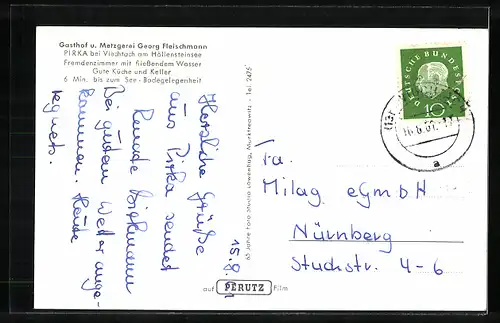 Gasthof u. Metzgerei Georg Fleischmann
PIRKA bei Viechtach am Höllensteinsee
Fremdenzimmer mit fließendem Wasser
Gute Küche und Keller
6 Min. bis zum See - Badegelegenheit
15.8.
Herzliche Grüße
aus Pirka sendet
Renate
Bei gutem Wetter ange-
kommen. Heute
regnets.
65 Jahre Foto-Studio Löwenhag, Marktredwitz - Tel. 2475
auf PERUTZ Film
DEUTSCHE BUNDESPOST
10
a
Fa.
Milag eGmbH
Nürnberg
Stuchstr. 4-6